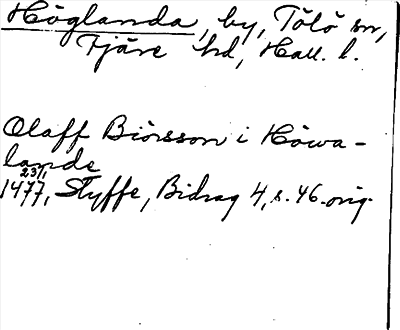 Höglanda, by, Tölö sn,
Fjäre hd, Hall. l.
Olaff Biörsson i Höwa-
lande
23/1
1477, Styffe, Bidrag 4, s. 46. orig.